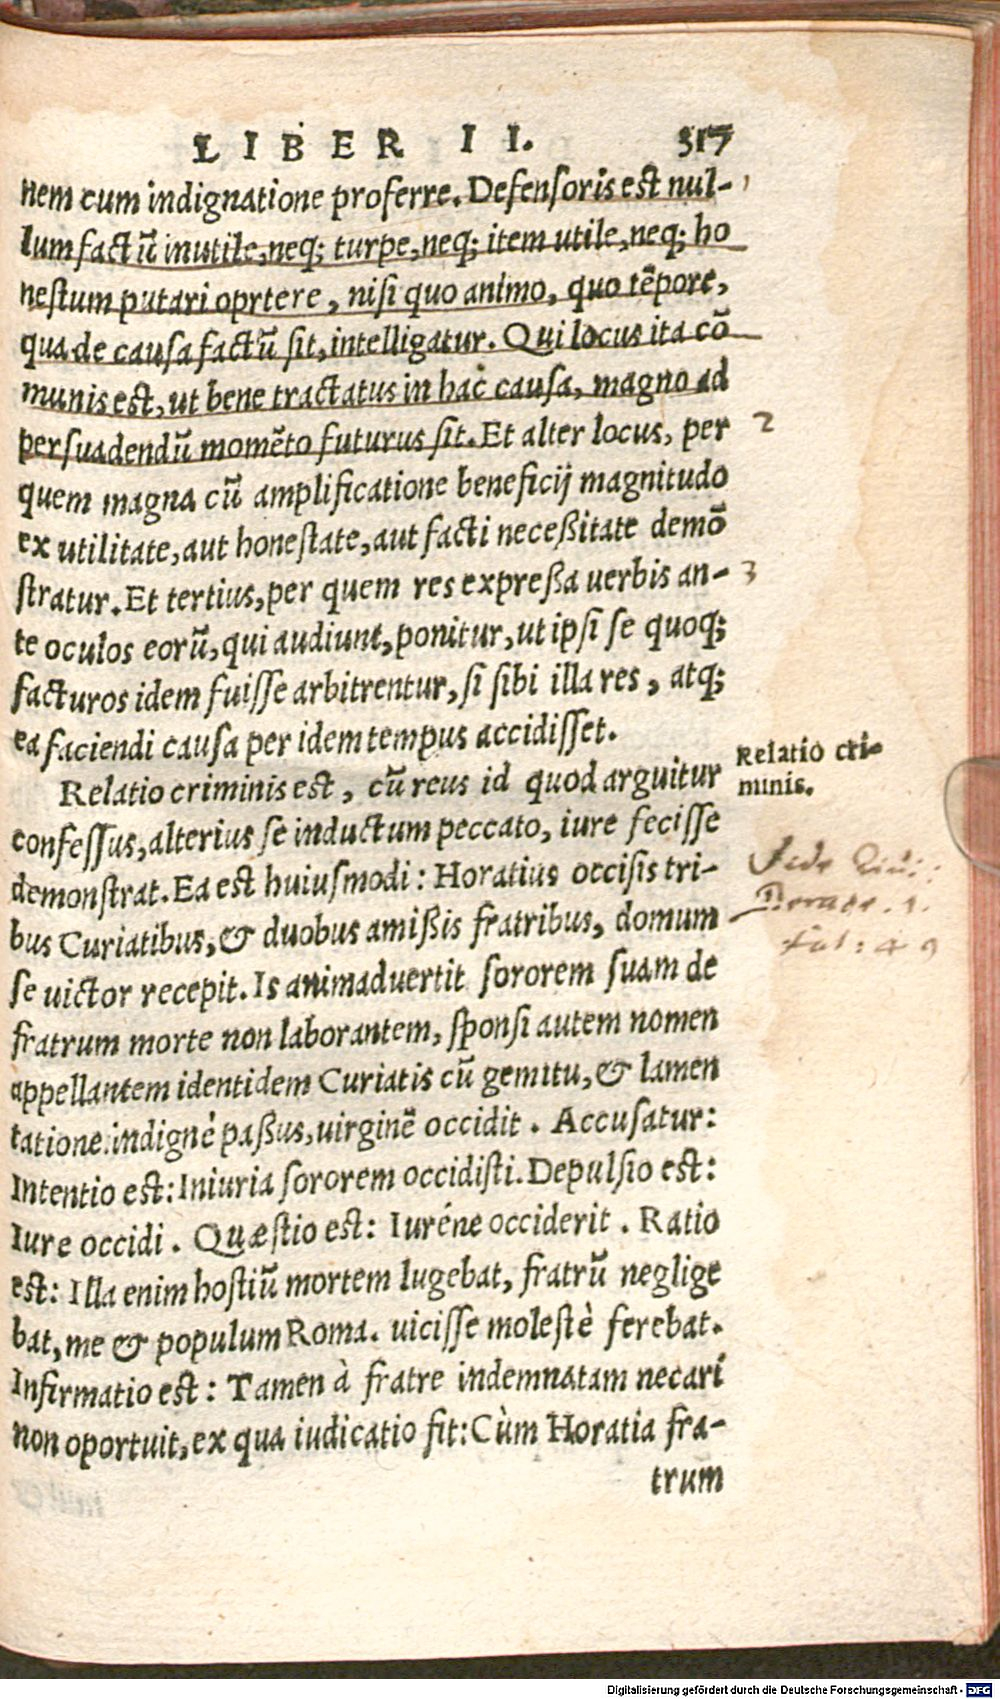 LIBER II. 317
nem cum indignatione proferre. Defensoris est nul-
lum factũ inutile, neq; turpe, neq; item utile, neq; ho
nestum putari oprtere, nisi quo animo, quo tẽpore,
qua de causa factũ sit, intelligatur. Qui locus ita cõ
munis est, ut bene tractatus in hac causa, magno ad
persuadendũ momẽto futurus sit. Et alter locus, per
2
quem magna cũ amplificatione beneficij magnitudo
ex utilitate, aut honestate, aut facti neceßitate demõ
stratur. Et tertius, per quem res expreßa uerbis an-
3
te oculos eorũ, qui audiunt, ponitur, ut ipsi se quoq;
facturos idem fuisse arbitrentur, si sibi illa res, atq;
ea faciendi causa per idem tempus accidisset.
Relatio cri-
minis.
Relatio criminis est, cũ reus id quod arguitur
confessus, alterius se inductum peccato, iure fecisse
demonstrat. Ea est huiusmodi: Horatius occisis tri-
bus Curiatibus, & duobus amißis fratribus, domum
se uictor recepit. Is animaduertit sororem suam de
fratrum morte non laborantem, sponsi autem nomen
appellantem identidem Curiatis cũ gemitu, & lamen
tatione. indignè paßus, uirginẽ occidit. Accusatur:
Intentio est: Iniuria sororem occidisti. Depulsio est:
Iure occidi. Quæstio est: Iuréne occiderit. Ratio
est: Illa enim hostiũ mortem lugebat, fratrũ neglige
bat, me & populum Roma. uicisse molestè ferebat.
Infirmatio est: Tamen à fratre indemnatam necari
non oportuit, ex qua iudicatio fit: Cùm Horatia fra-
trum
Digitalisierung gefördert durch die Deutsche Forschungsgemeinschaft - DFG